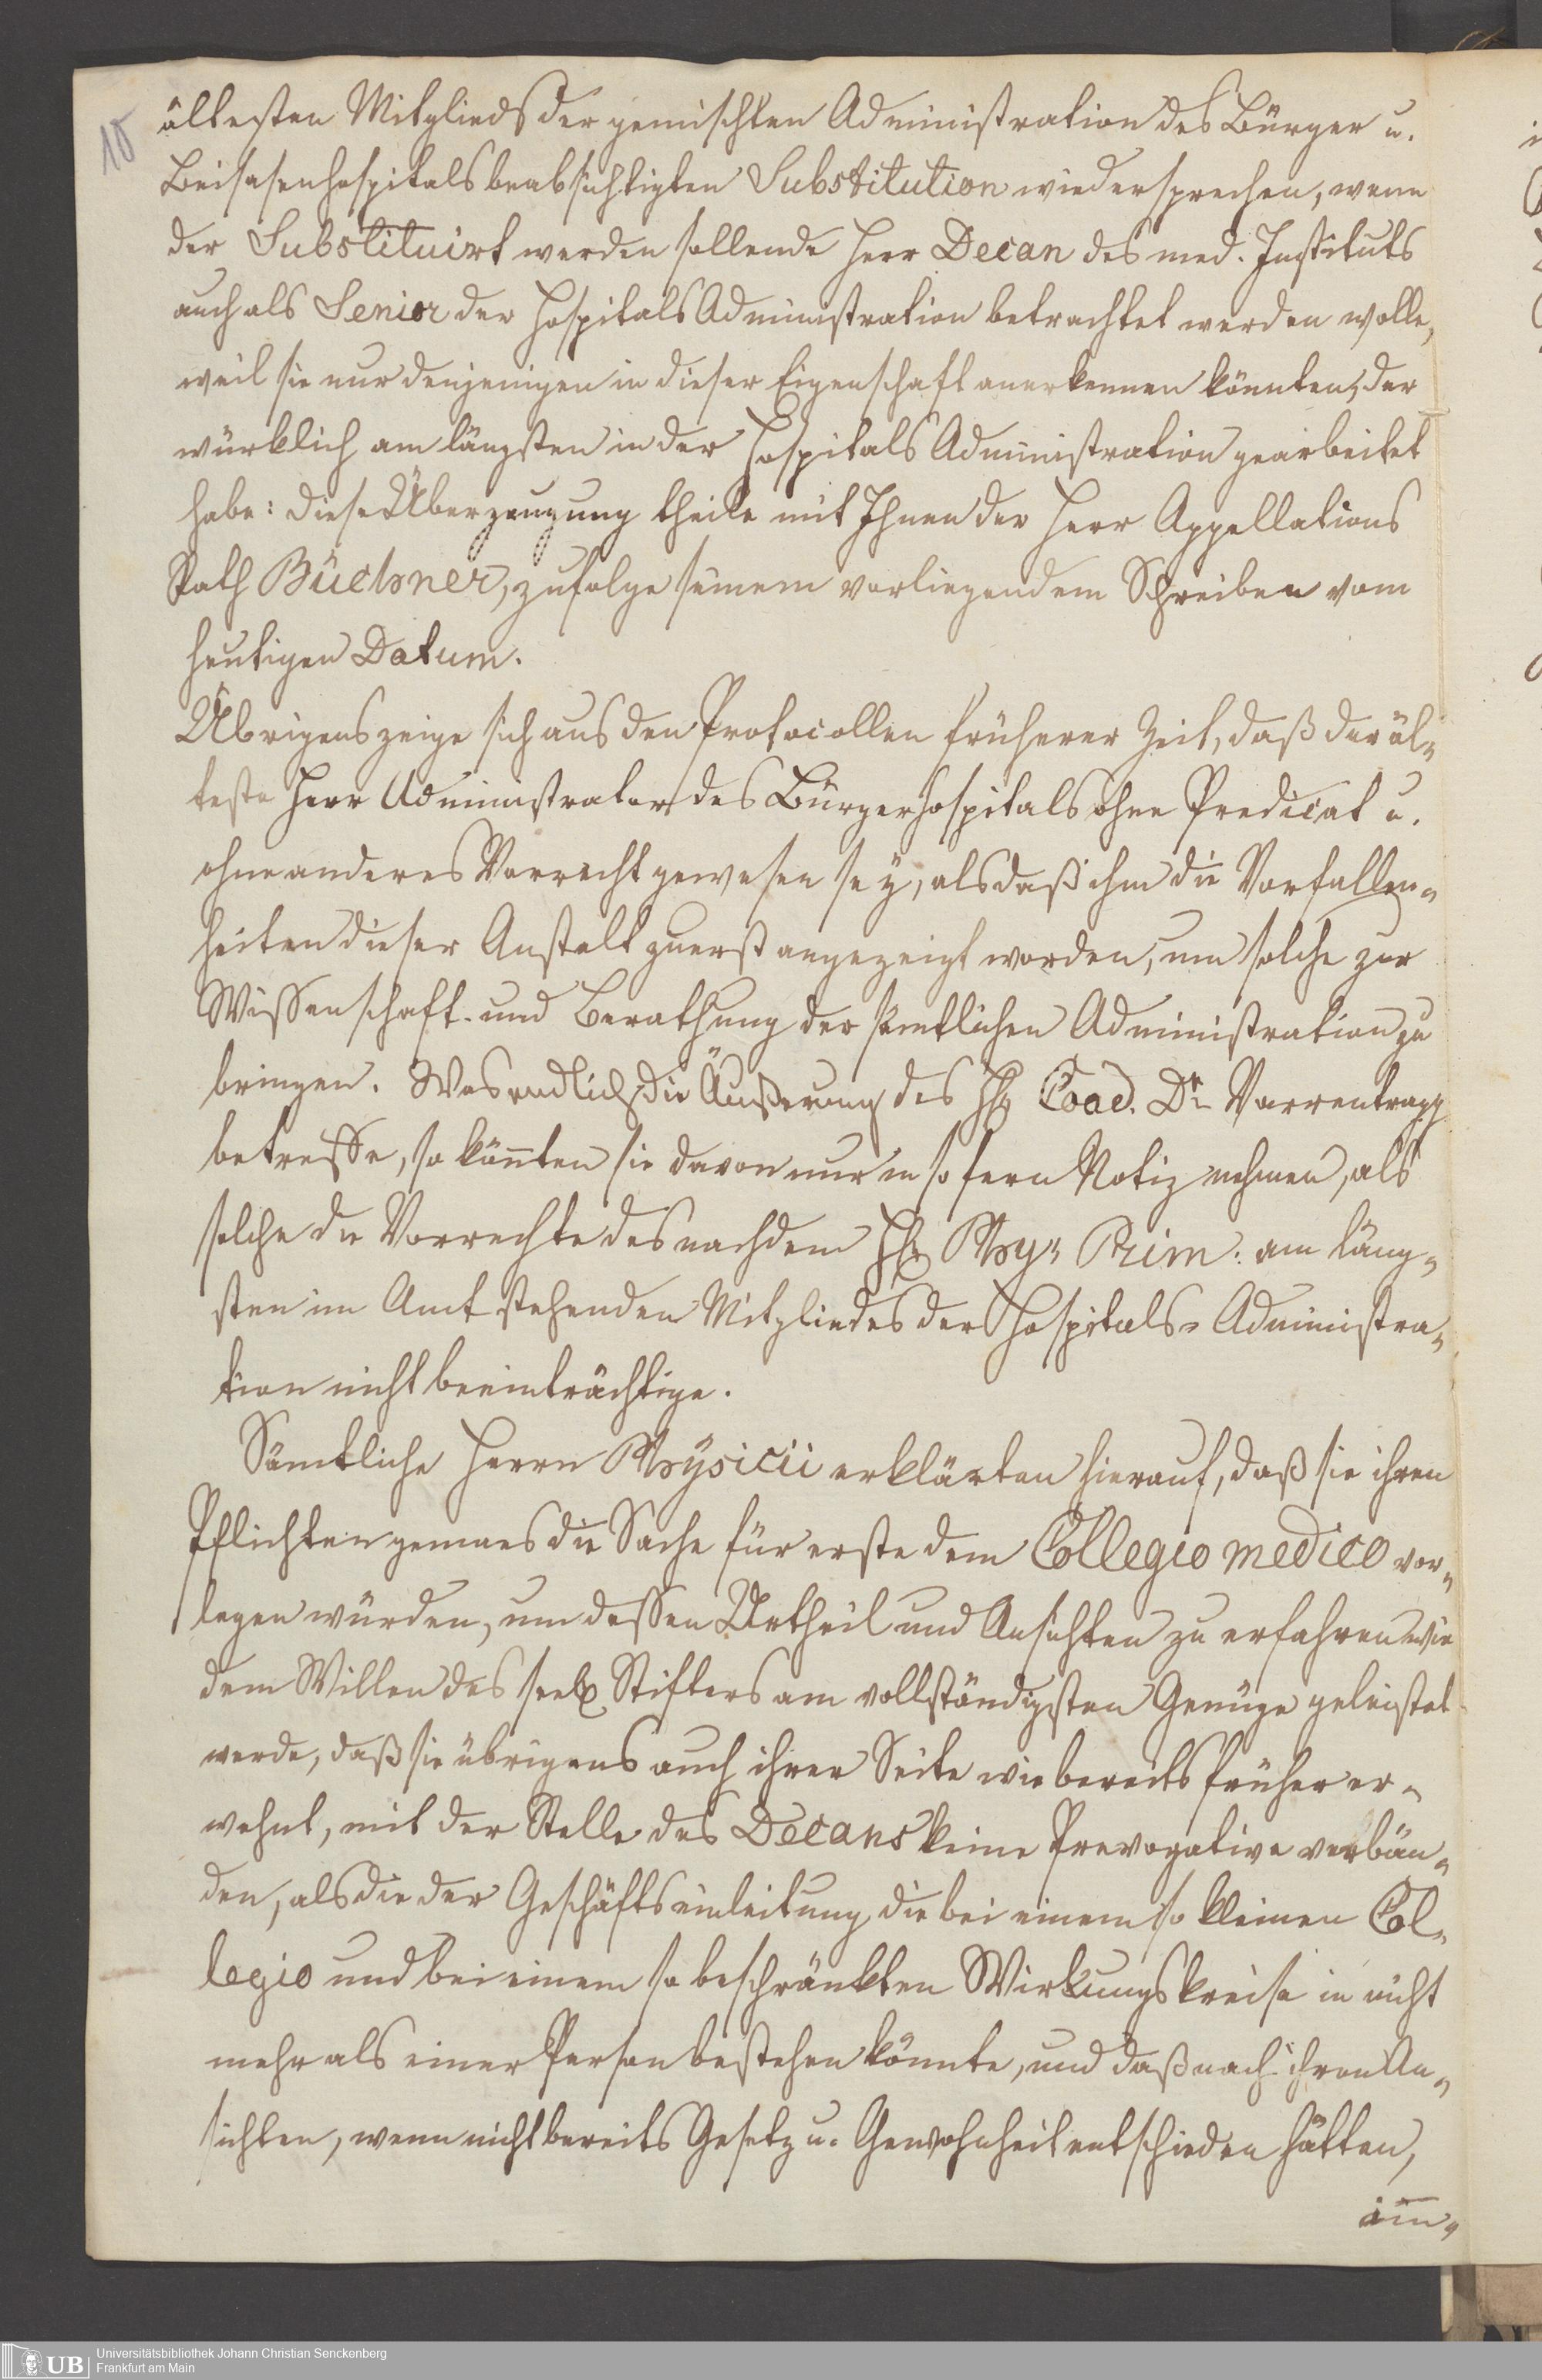 10
ältesten Mitglieds der gemischten Administration des Bürger u.
Beisasenhospitals beabsichtigten Substitution wiedersprechen, wenn
der Substituirt werden sollende Herr Decan des med. Instituts
auch als Senior der Hospitals Administration betrachtet werden wolle,
weil sie nur denjenigen in dieser Eigenschaft anerkennen könnten, der
würklich am längsten in der Hospitals Administration gearbeitet
habe: diese Überzeugung theile mit Ihnen der Herr Appellations
Rath Büchner, zufolge seinem vorliegendem Schreiben vom
heutigen Datum.
Übrigens zeige sich aus den Protocollen früherer Zeit, daß der äl-
teste Herr Administrator des Bürgerhospitals ohne Predicat u.
ohne anderes Vorrecht gewesen sey, als daß ihm die Vorfallen-
heiten dieser Anstalt zuerst angezeigt worden, um solche zur
Wissenschaft und Berathung der sämtlichen Administration zu
bringen. Was endlich die Äußerung des H. Coad. Dr. Varrentrapp
betreffe, so könten sie davon nur in so fern Notiz nehmen, als
solche die Vorrechte des nach dem H. Phy. Prim: am läng-
sten im Amt stehenden Mitgliedes der Hospitals-Administra-
tion nicht beeinträchtige.
Sämtliche Herrn Physicii erklärten hierauf, daß sie ihren
Pflichten gemaes die Sache für erste dem Collegio medico vor-
legen würden, um dessen Urtheil und Ansichten zu erfahren wie
dem Willen des seel. Stifters am vollständigsten Genüge geleistet
werde, daß sie übrigens auch ihrer Seite wie bereits früher er-
wehnt, mit der Stelle des Decans keine Prerogative verbän-
den, als die der Geschäftseinleitung, die bei einem so kleinen Col-
legio und bei einem so beschränkten Wirkungskreise in nicht
mehr als einer Person bestehen könnte, und daß nach ihren An-
sichten, wenn nicht bereits Gesetz u. Gewohnheit entschieden hätten,
im-
UB
Universitätsbibliothek Johann Christian Senckenberg
Frankfurt am Main